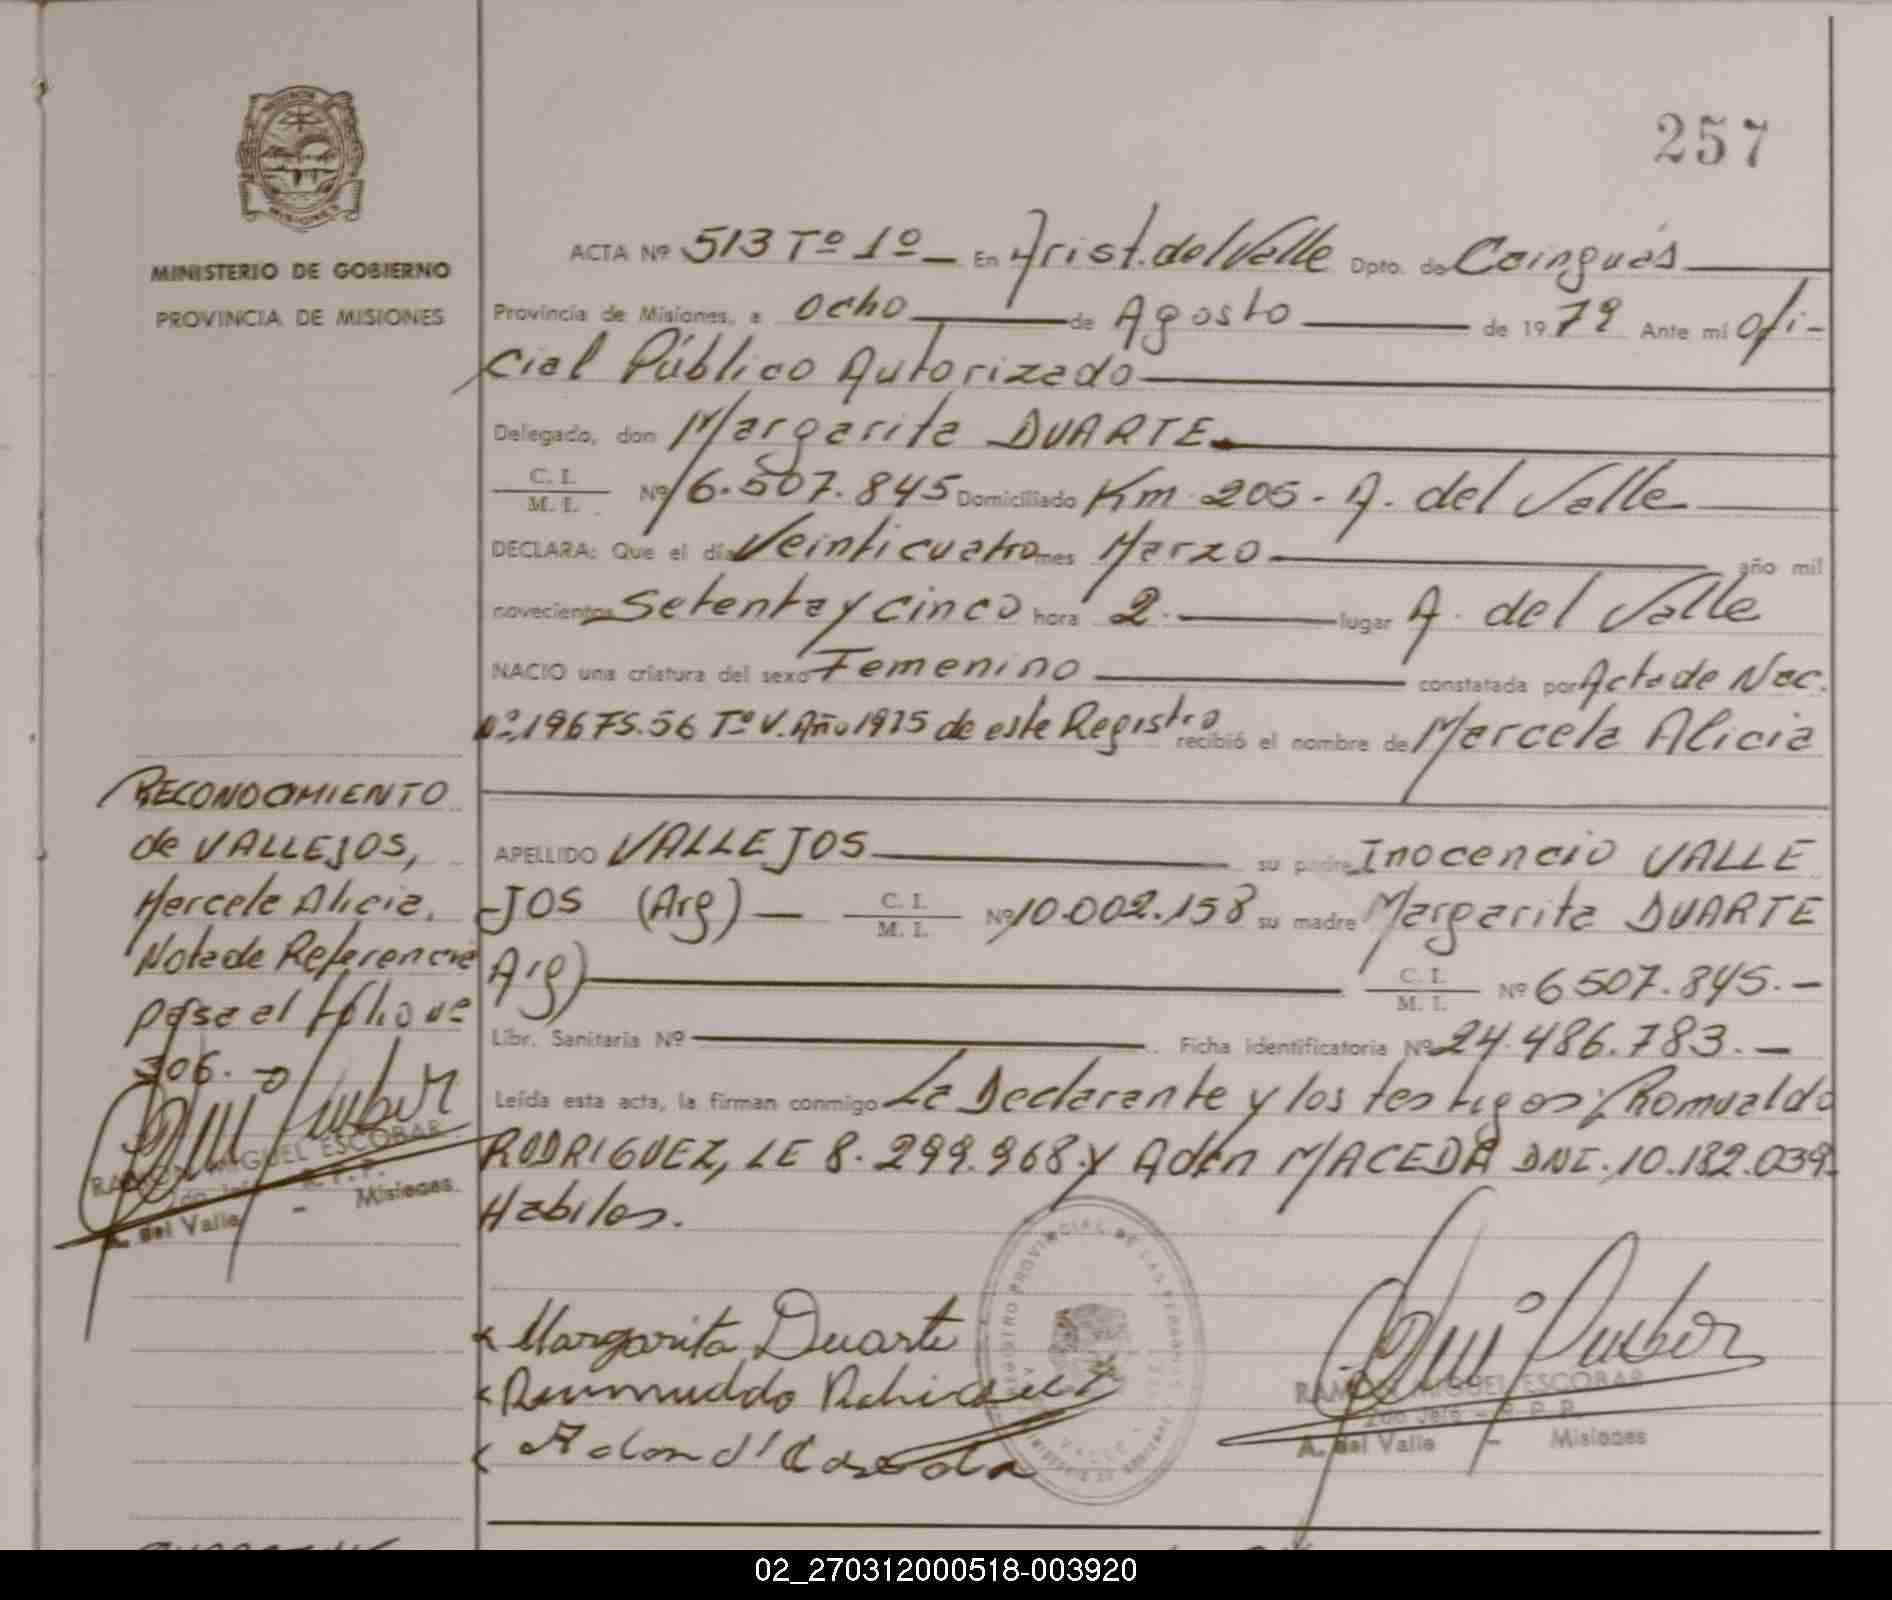 257
MINISTERIO DE GOBIERNO
PROVINCIA DE MISIONES
ACTA Nº 513 Tº 1º — En Arist. del Valle Dpto. de Cainguás
Provincia de Misiones, a ocho de Agosto de 1979 Ante mí Ofi-
cial Público Autorizado
Delegado, don Margarita DUARTE
C. I.
M. I. Nº 6.507.845 Domiciliado Km. 205 - A. del Valle
DECLARA: Que el día Veinticuatro mes Marzo año mil
novecientos Setenta y cinco hora 2. lugar A. del Valle
NACIO una criatura del sexo Femenino constatada por Acta de Nac.
Nº 196 FS. 56 Tº V. Año 1975 de este Registro recibió el nombre de Marcela Alicia
APELLIDO VALLEJOS su padre Inocencio VALLE
JOS (Arg) — C. I.
M. I. Nº 10.002.158 su madre Margarita DUARTE
Arg) C. I.
M. I. Nº 6507.845.-
Libr. Sanitaria Nº Ficha Identificatoria Nº 24.486.783.-
Leída esta acta, la firman conmigo La Declarante y los testigos: Romualdo
RODRIGUEZ, LE 8.299.968 y Adán MACEDA DNI. 10.182.039.
Habiles.
RECONOCIMIENTO
de VALLEJOS,
Marcela Alicia.
Nota de Referencia
pasa al folio
306.
RAMON MIGUEL ESCOBAR
2do Jefe R. P. P.
A. del Valle - Misiones
Margarita Duarte
REGISTRO PROVINCIAL DE LAS PERSONAS
RAMON MIGUEL ESCOBAR
2do Jefe - R. P. P.
A. del Valle - Misiones
02_270312000518-003920